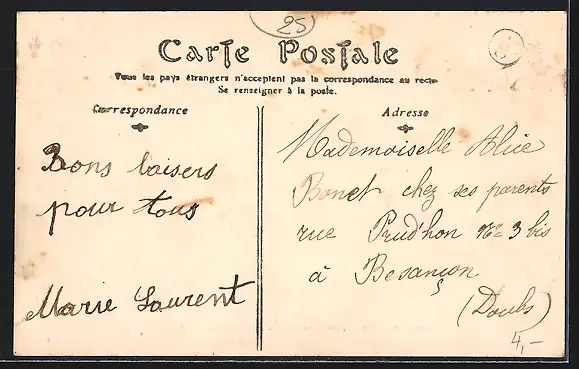 25
Carte Postale
Tous les pays étrangers n'acceptent pas la correspondance au recto
Se renseigner à la poste.
Correspondance
Adresse
Bons baisers
pour tous
Marie Laurent
Mademoiselle Alice
Bonet chez ses parents
rue Prud'hon No 3 bis
à Besançon
(Doubs)
4,-